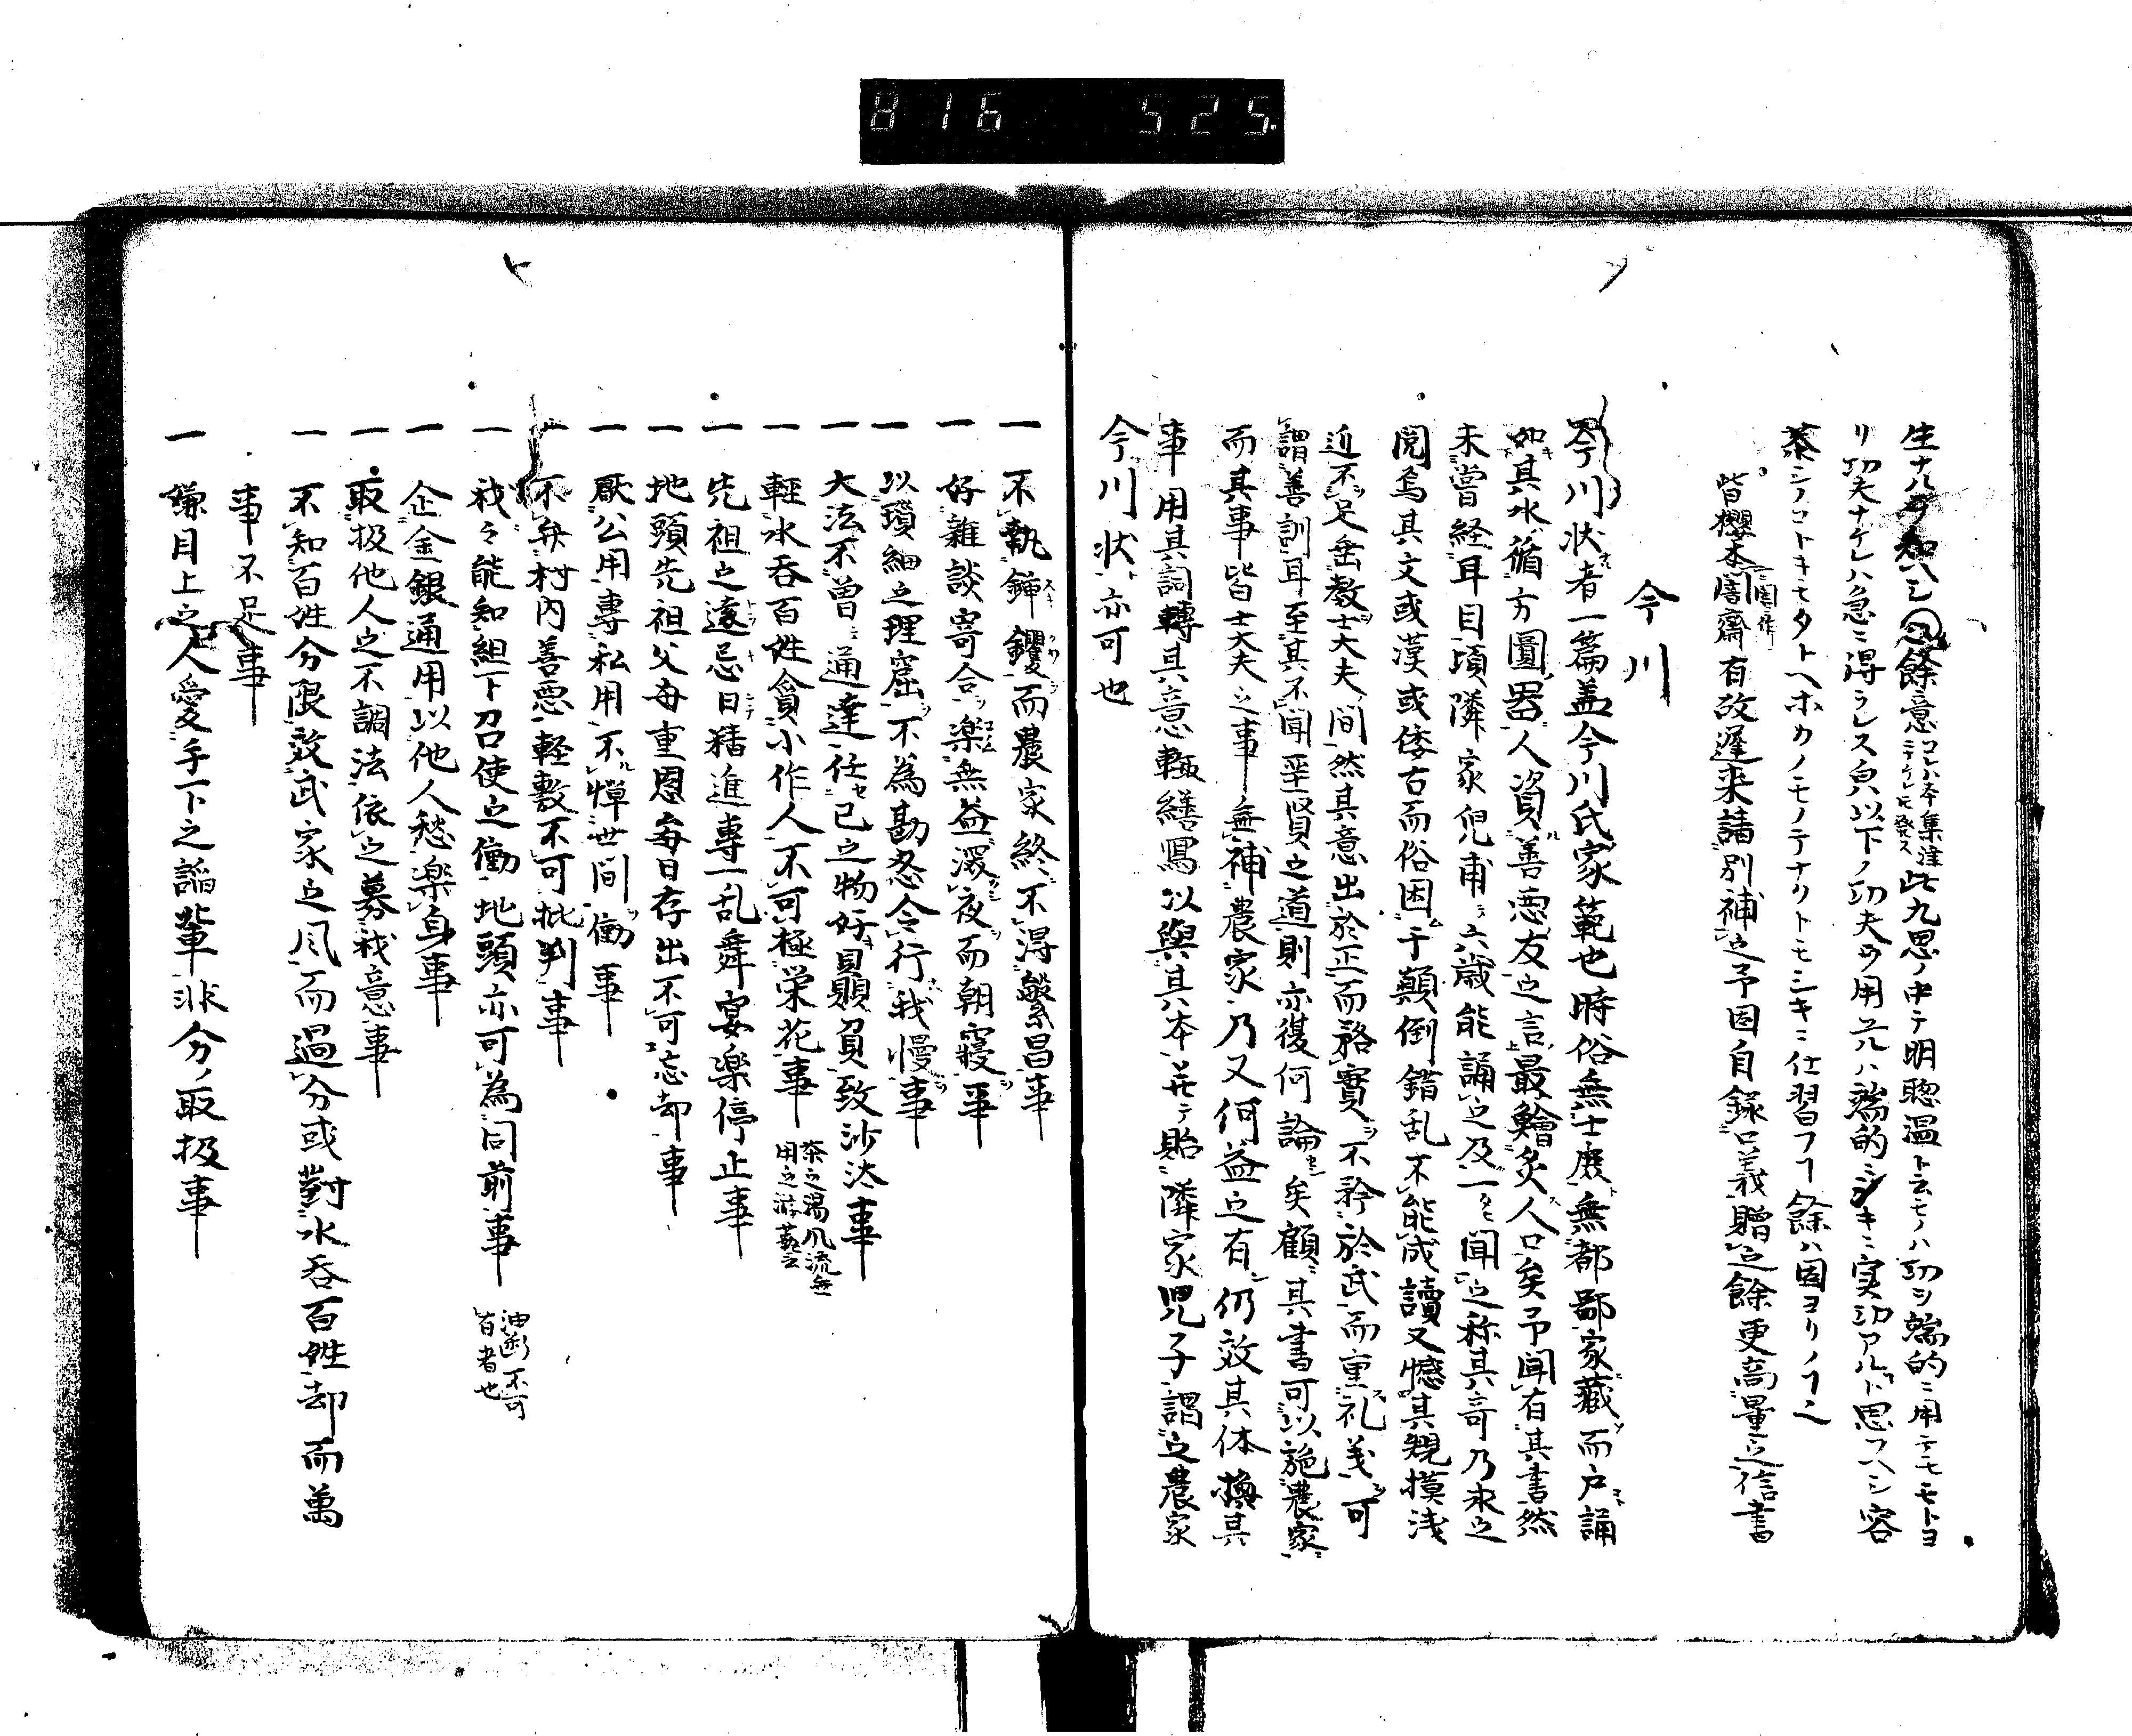 816 525.
餘意コレハ本集注 此九思ノ中テ明聰温ト云モノハ切シ端的ニ用テモモトヨ
リ功夫ナケレハ急ニ得ラレス 以下ノ功夫ヲ用 ハ端的 ニ実功アルト思フヘシ容
シノコトキモタトヘホカノモノテナリトモシキニ仕習フ 餘ハ図ヨリノ
皆櫻木闇齋有改遲来請別補之予因自録口義贈之餘更高量之信書
今川
今川状者一篇盖今川氏家範也時俗無士庶無都鄙家藏而戸誦
如其水循方圓器人資善悪友之言最鱠炙人口矣予聞有其書然
未嘗経耳目頃隣家児甫六歳能誦之及一聞之称其奇乃求之
閲焉其文或漢或倭古而俗困于顛倒錯乱不能成讀又憾其規摸浅
近不足垂教士大夫間然其意出於正而務實不矜於武而重礼義可
謂善訓耳至其不聞聖賢之道則亦復何論矣顧其書可以施農家
而其事皆士大夫之事無補農家乃又何益之有仍效其体換其
事用其詞轉其意輙繕寫以與其本并テ貽隣家児子謂之農家
今川状亦可也
一 不執鋤钁而農家終不得繁昌事
一 好雜談寄合楽無益深夜而朝寝事
一 以瑣細之理窟不為勘忍令行我慢事
一 大法不曽通達任己之物好負贔負致沙汰事
一 輕水呑百姓貧小作人不可極栄花事 茶之湯風流無用之游藝云
一 先祖之遠忌日精進專一乱舞宴楽停止事
一 地頭先祖父母重恩毎日存出不可忘却事
一 厭公用專私用不憚世間働事
一 不弁村内善悪軽敷不可批判事
一 我々能知組下召使之働地頭亦可為同前事 油断不可有者也
一 企金銀通用以他人愁楽身事
一 取扱他人之不調法依之募我意事
一 不知百姓分限效武家之風而過分或對水呑百姓却而萬
事不足事
一 嫌目上之人愛手下之謟輩非分ノ取扱事